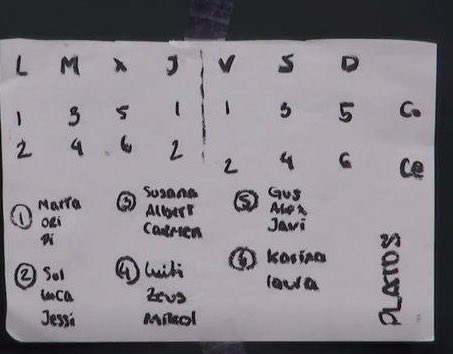 L M X J V S D
1 3 5 1 1 3 5 Co
2 4 6 2 2 4 6 Ce
1 Marta
Ori
Pi
2 Sol
Luca
Jessi
3 Susana
Albert
Carmen
4 Luiti
Zeus
5 Gus
Alex
Javi
6 Karina
Laura
PLATOS